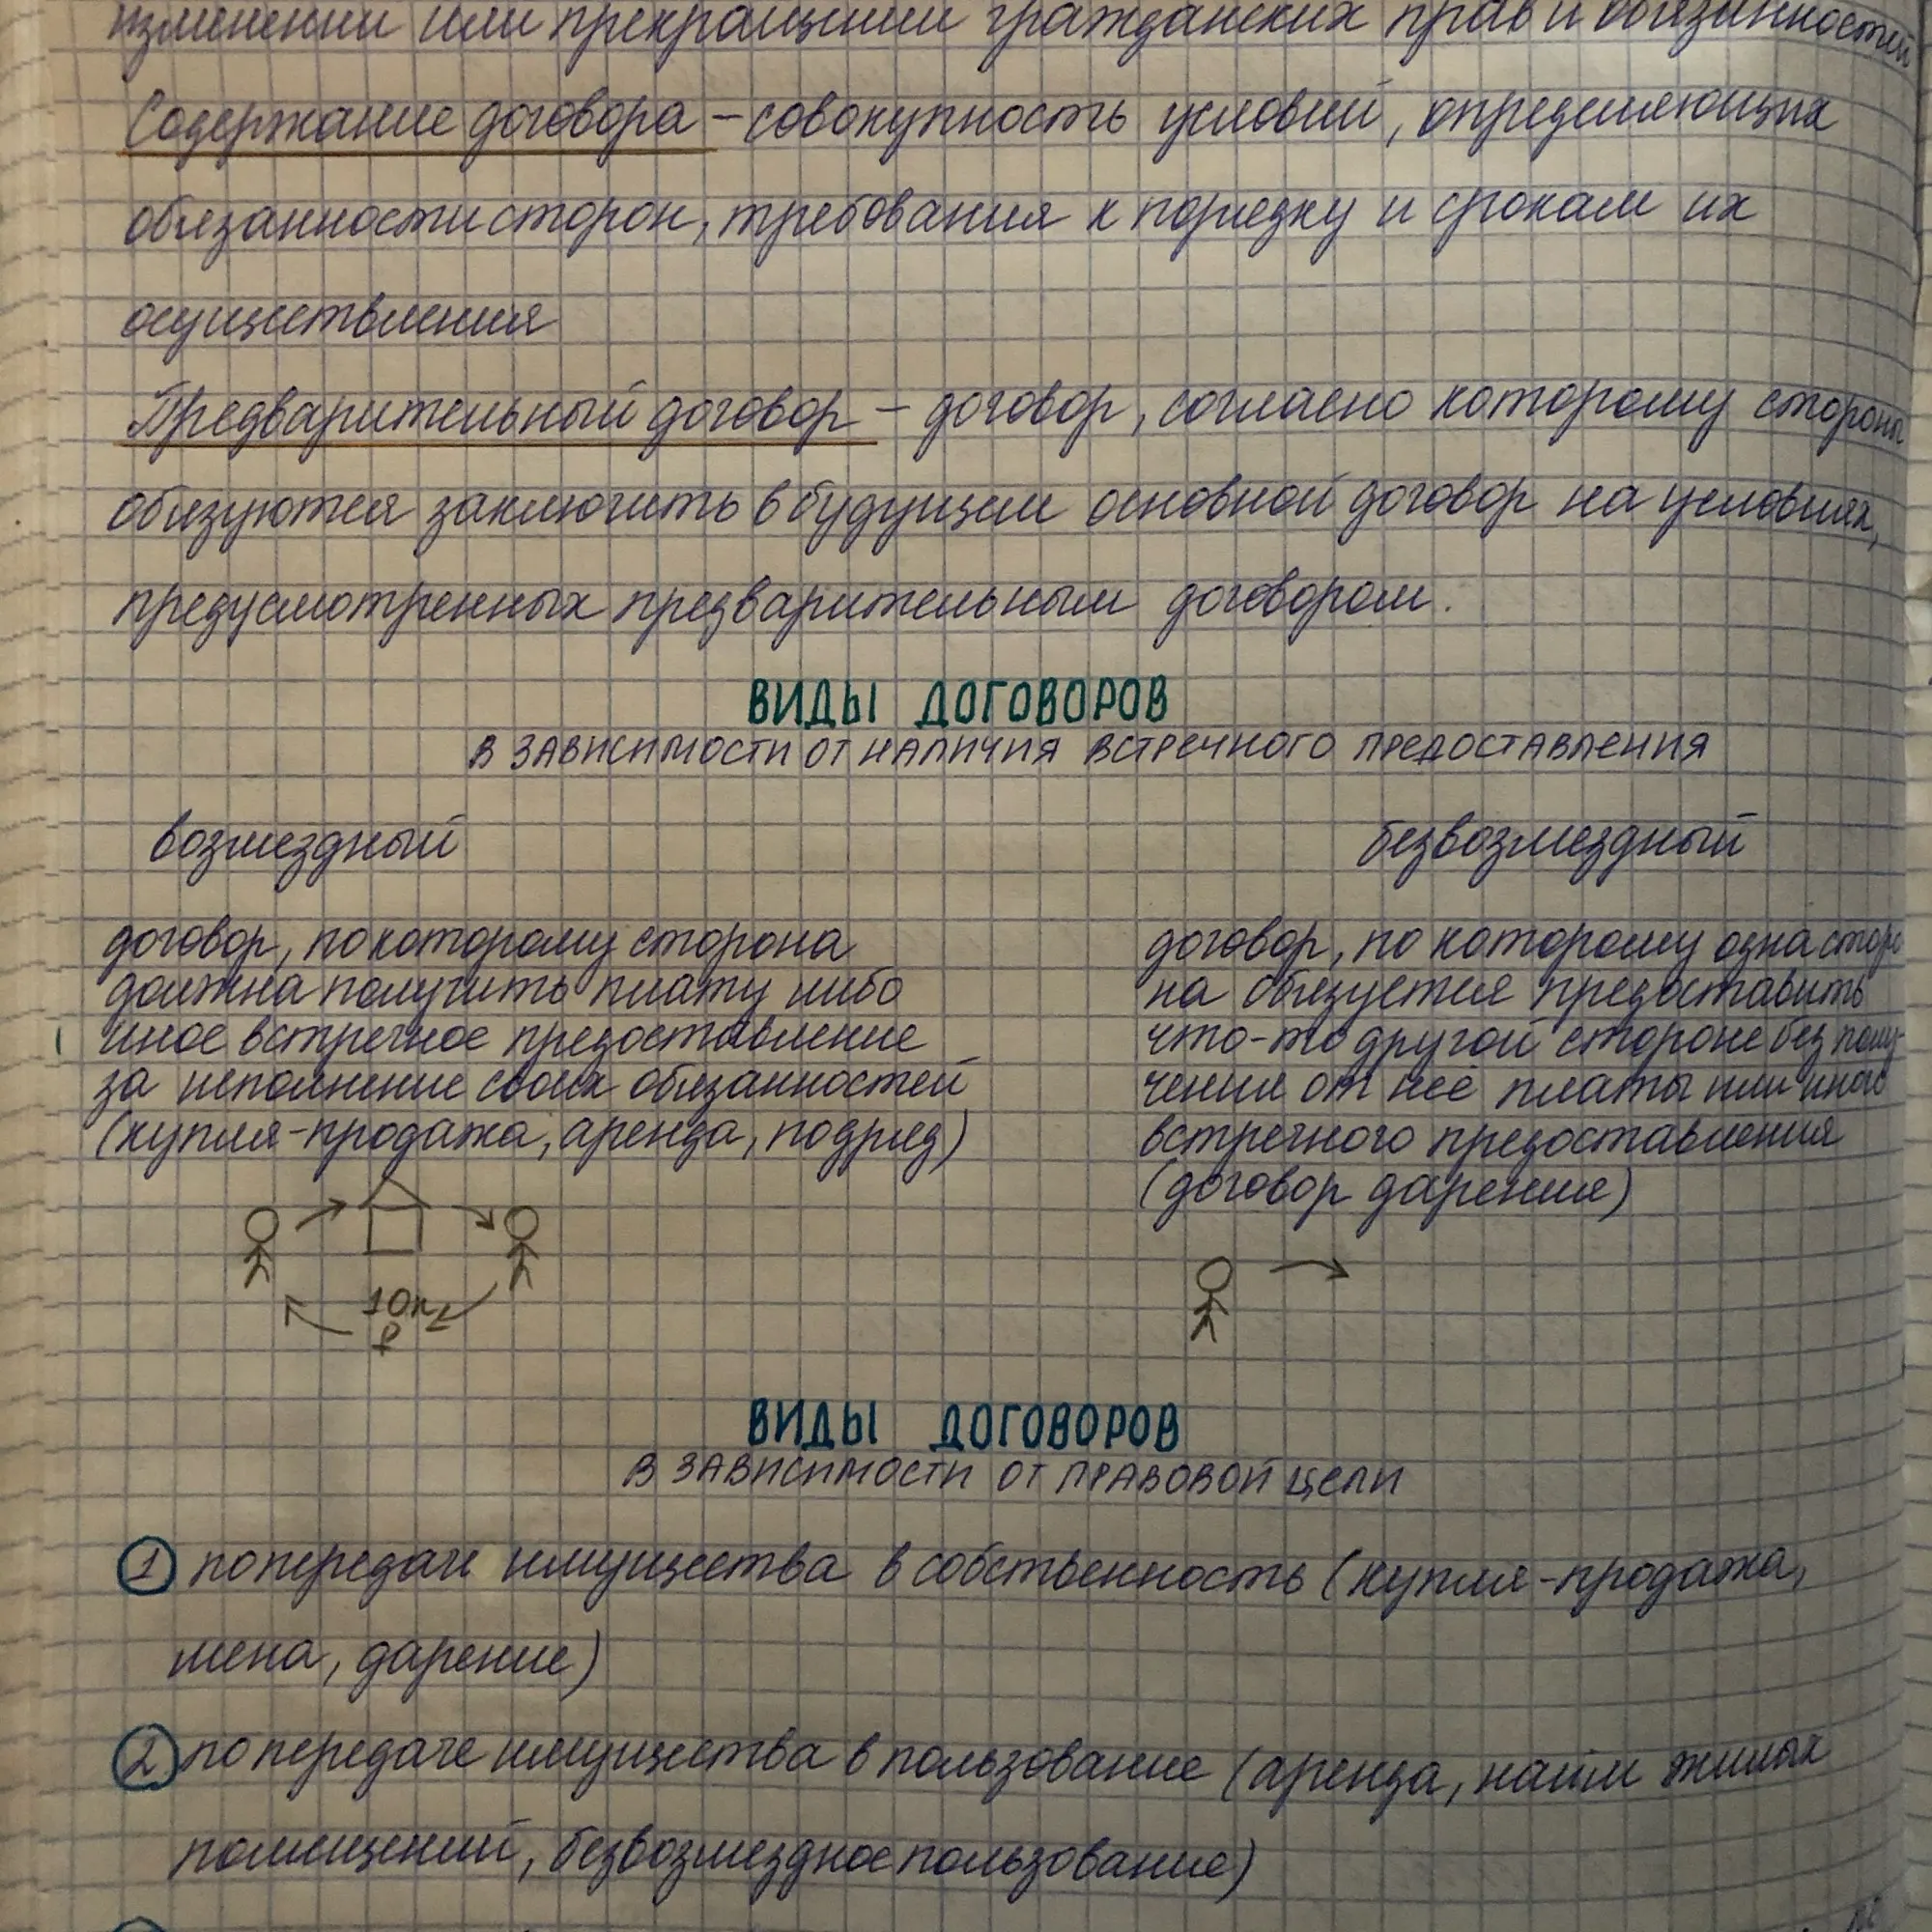 изменении или прекращении гражданских прав и обязанностей
Содержание договора – совокупность условий, определяющих
обязанности сторон, требования к порядку и срокам их
осуществления
Предварительный договор – договор, согласно которому стороны
обязуются заключить в будущем основной договор на условиях,
предусмотренных предварительным договором.
ВИДЫ ДОГОВОРОВ
В ЗАВИСИМОСТИ ОТ НАЛИЧИЯ ВСТРЕЧНОГО ПРЕДОСТАВЛЕНИЯ
возмездный
договор, по которому сторона
должна получить плату либо
иное встречное предоставление
за исполнение своих обязанностей
(купля-продажа, аренда, подряд)
10к
₽
безвозмездный
договор, по которому одна сторо
на обязуется предоставить
что-то другой стороне без полу-
чения от неё платы или иного
встречного предоставления
(договор дарение)
ВИДЫ ДОГОВОРОВ
В ЗАВИСИМОСТИ ОТ ПРАВОВОЙ ЦЕЛИ
1 по передаче имущества в собственность (купля-продажа,
мена, дарение)
2 по передаче имущества в пользование (аренда, найм жилых
помещений, безвозмездное пользование)